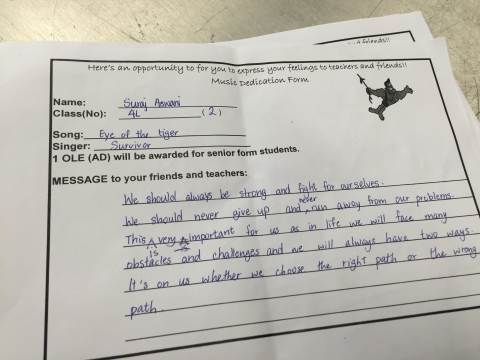 friends!!
Here's an opportunity to for you to express your feelings to teachers and friends!!
Music Dedication Form
Name: Suraj Aswani
Class(No): 4L (2)
Song: Eye of the tiger
Singer: Survivor
1 OLE (AD) will be awarded for senior form students.
MESSAGE to your friends and teachers:
We should always be strong and fight for ourselves.
We should never give up and never run away from our problems.
This is very important for us as in life we will face many
obstacles and challenges and we will always have two ways.
It's on us whether we choose the right path or the wrong
path.